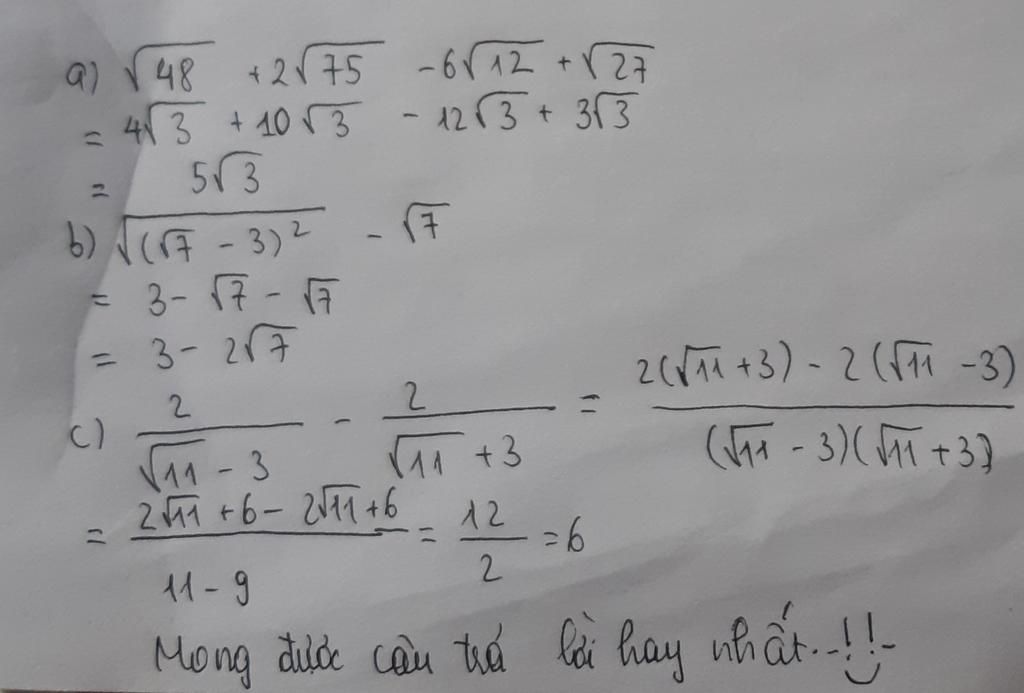 a) √48 + 2√75 - 6√12 + √27
= 4√3 + 10√3 - 12√3 + 3√3
= 5√3
b) √((√7 - 3)²) - √7
= 3 - √7 - √7
= 3 - 2√7
c) 2/(√11 - 3) - 2/(√11 + 3) = (2(√11 + 3) - 2(√11 - 3))/((√11 - 3)(√11 + 3))
= (2√11 + 6 - 2√11 + 6)/(11 - 9) = 12/2 = 6
Mong được câu trả lời hay nhất..-!!-